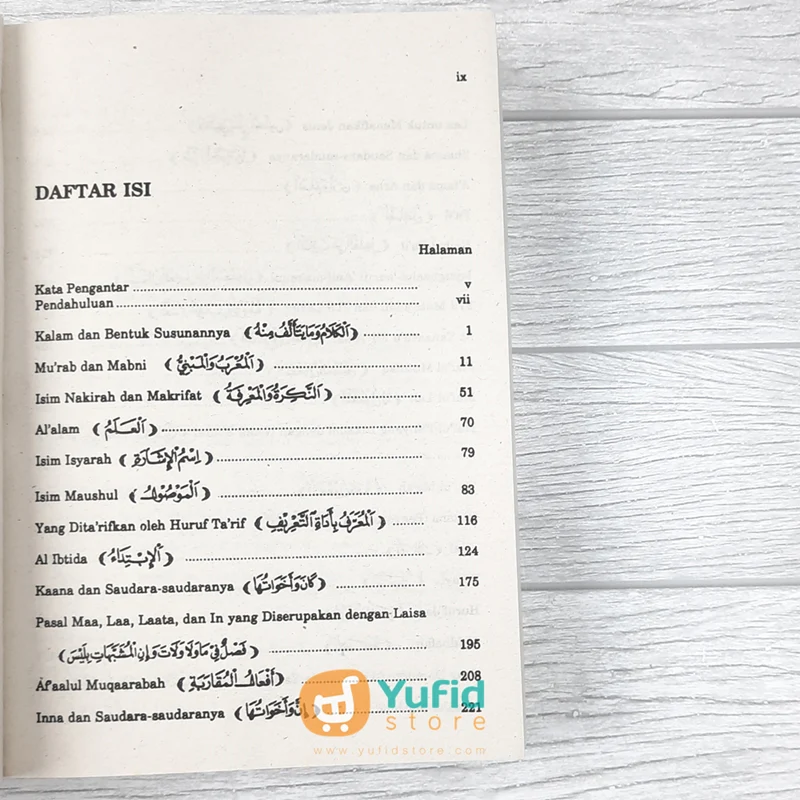 ix
DAFTAR ISI
Halaman
Kata Pengantar ........ v
Pendahuluan ........ vii
Kalam dan Bentuk Susunannya (اَلْكَلَامُ وَمَا يَتَأَلَّفُ مِنْهُ) ........ 1
Mu'rab dan Mabni (اَلْمُعْرَبُ وَالْمَبْنِيُّ) ........ 11
Isim Nakirah dan Makrifat (اَلنَّكِرَةُ وَالْمَعْرِفَةُ) ........ 51
Al'alam (اَلْعَلَمُ) ........ 70
Isim Isyarah (اِسْمُ الْإِشَارَةِ) ........ 79
Isim Maushul (اَلْمَوْصُوْلُ) ........ 83
Yang Dita'rifkan oleh Huruf Ta'rif (اَلْمُعَرَّفُ بِأَدَاةِ التَّعْرِيْفِ) ........ 116
Al Ibtida (اَلْإِبْتِدَاءُ) ........ 124
Kaana dan Saudara-saudaranya (كَانَ وَأَخَوَاتُهَا) ........ 175
Pasal Maa, Laa, Laata, dan In yang Diserupakan dengan Laisa
(فَصْلٌ فِي مَا وَلَا وَلَاتَ وَإِنِ الْمُشَبَّهَاتِ بِلَيْسَ) ........ 195
Af'aalul Muqaarabah (أَفْعَالُ الْمُقَارَبَةِ) 208
Inna dan Saudara-saudaranya (إِنَّ وَأَخَوَاتُهَا) 221
Yufid
store
www.yufidstore.com